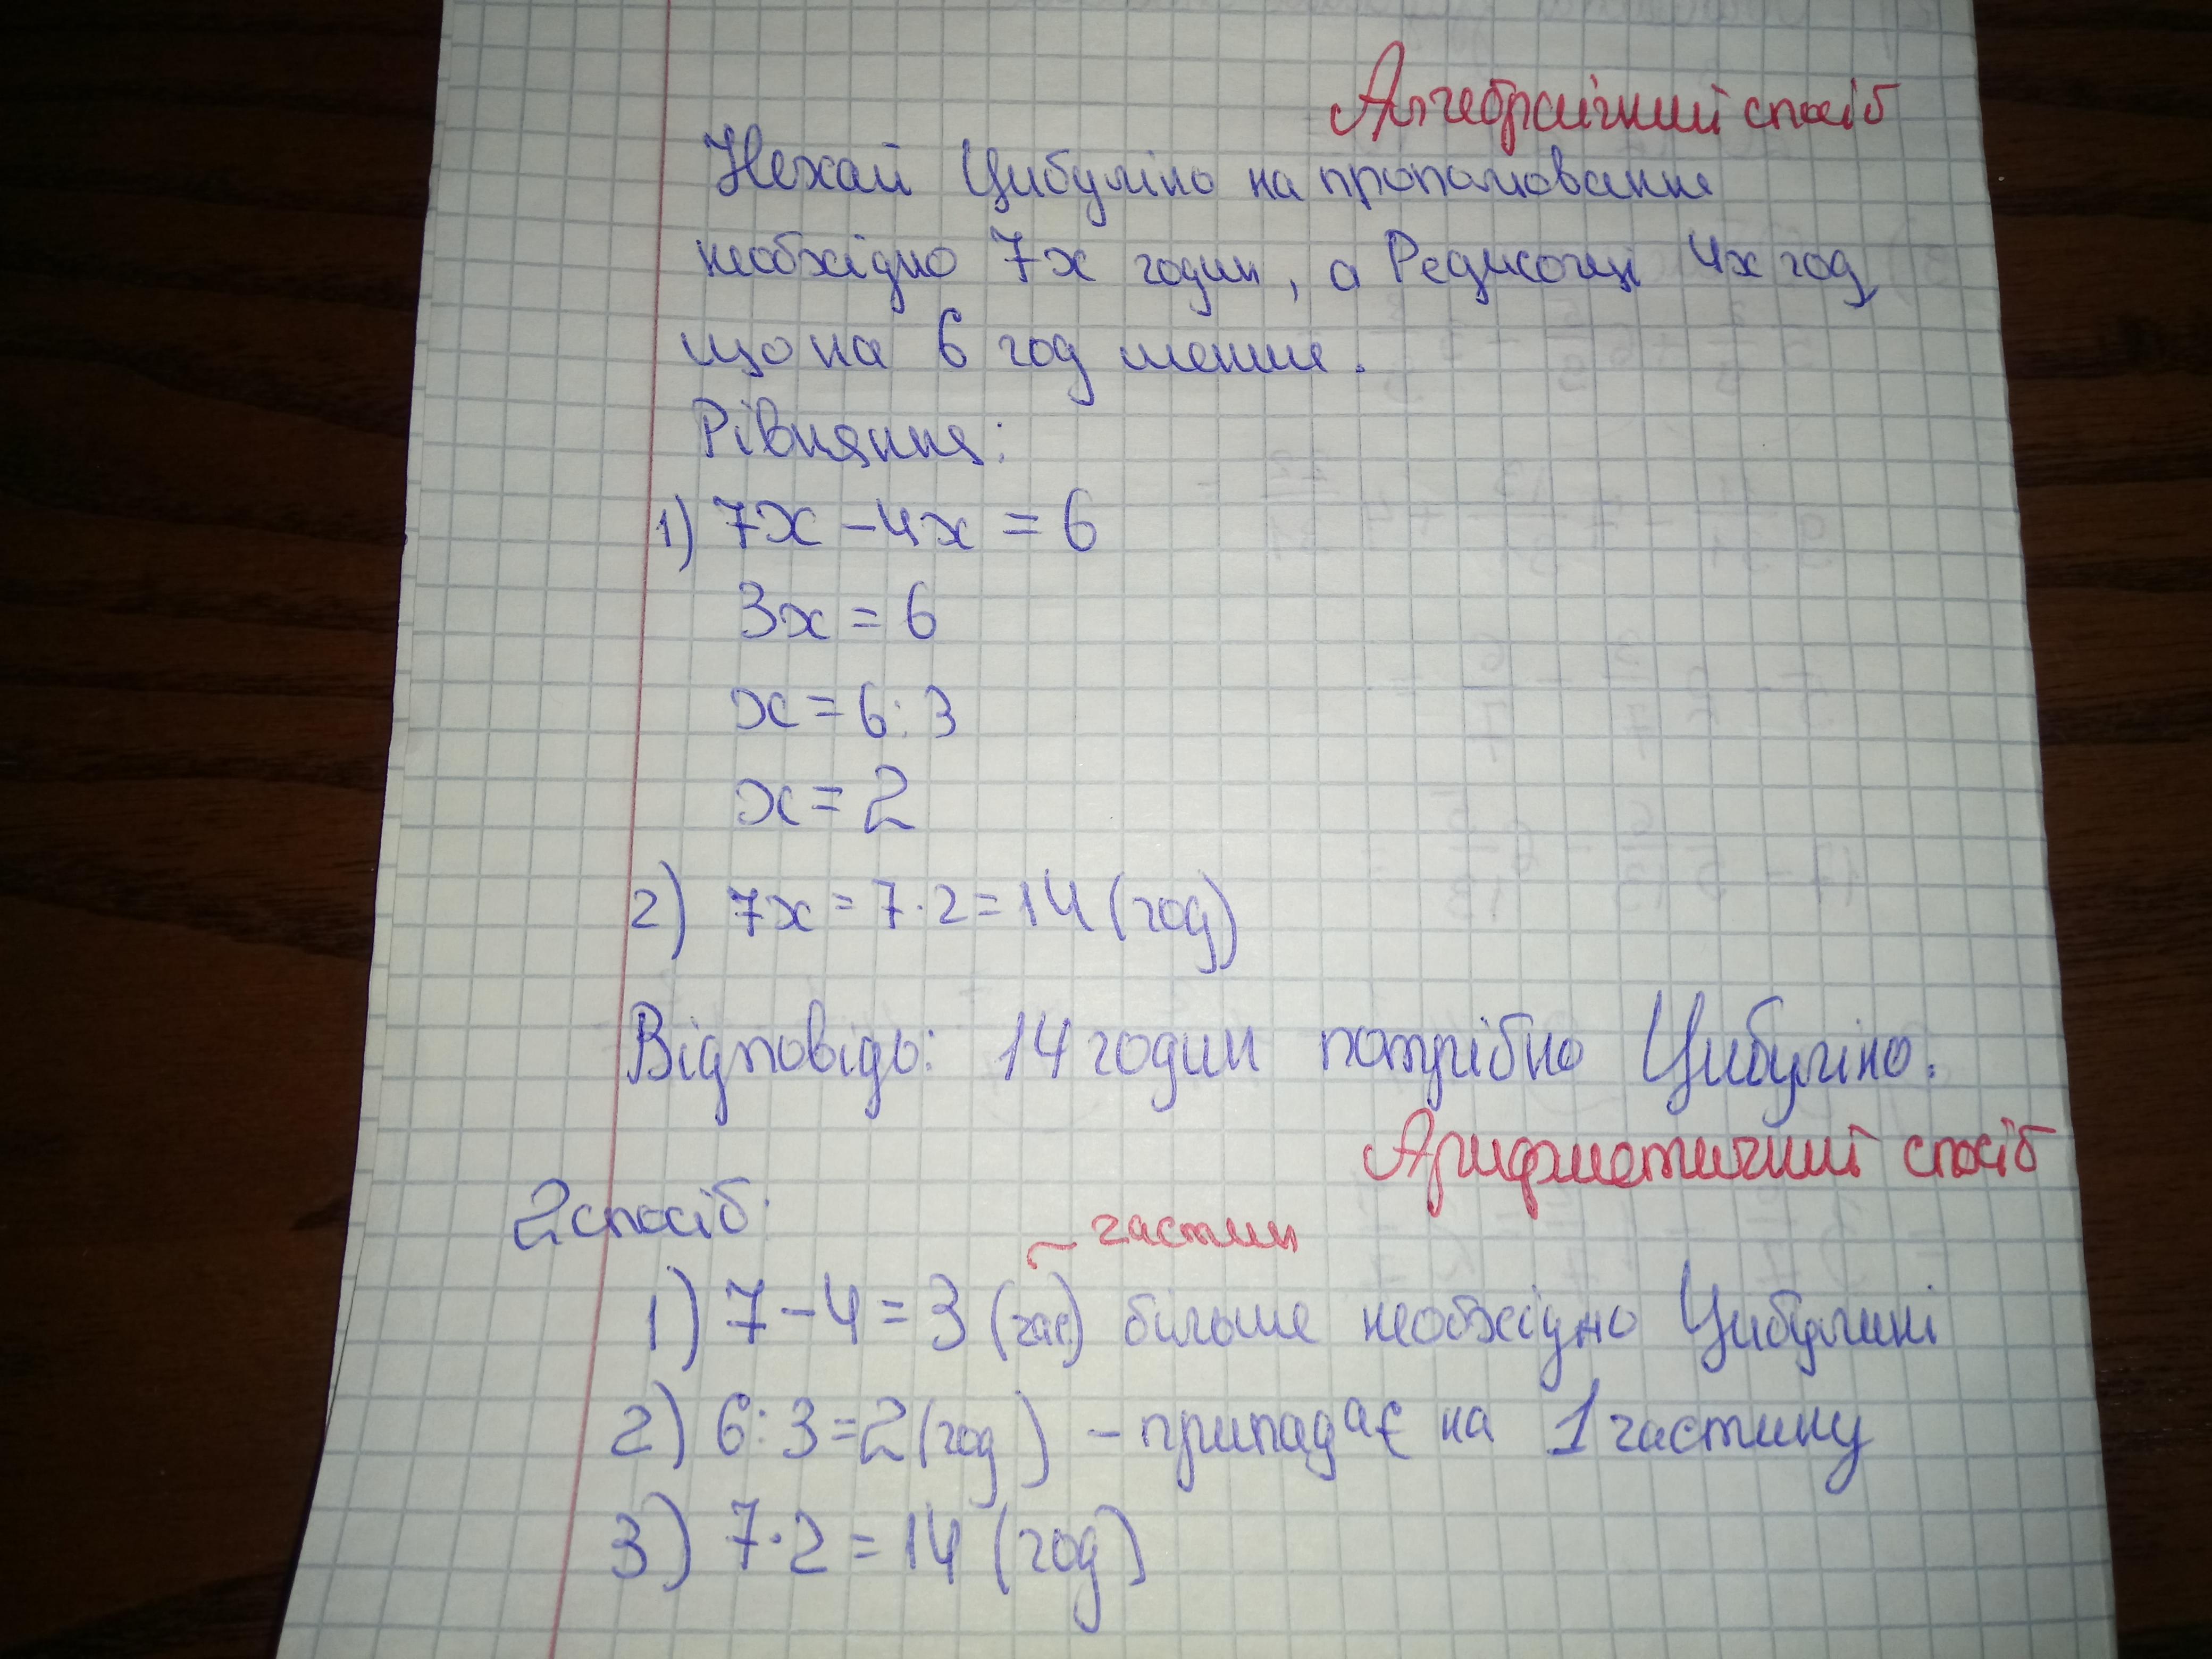 Алгебраїчний спосіб
Нехай Цибуліно на прополювання
необхідно 7х годин, а Редисочці 4х год
що на 6 год менше.
Рівняння:
1) 7х - 4х = 6
3х = 6
х = 6 : 3
х = 2
2) 7х = 7 · 2 = 14 (год)
Відповідь: 14 годин потрібно Цибуліно.
Арифметичний спосіб
2 спосіб:
частин
1) 7 - 4 = 3 (час) більше необхідно Цибуліні
2) 6 : 3 = 2 (год) - припадає на 1 частину
3) 7 · 2 = 14 (год)